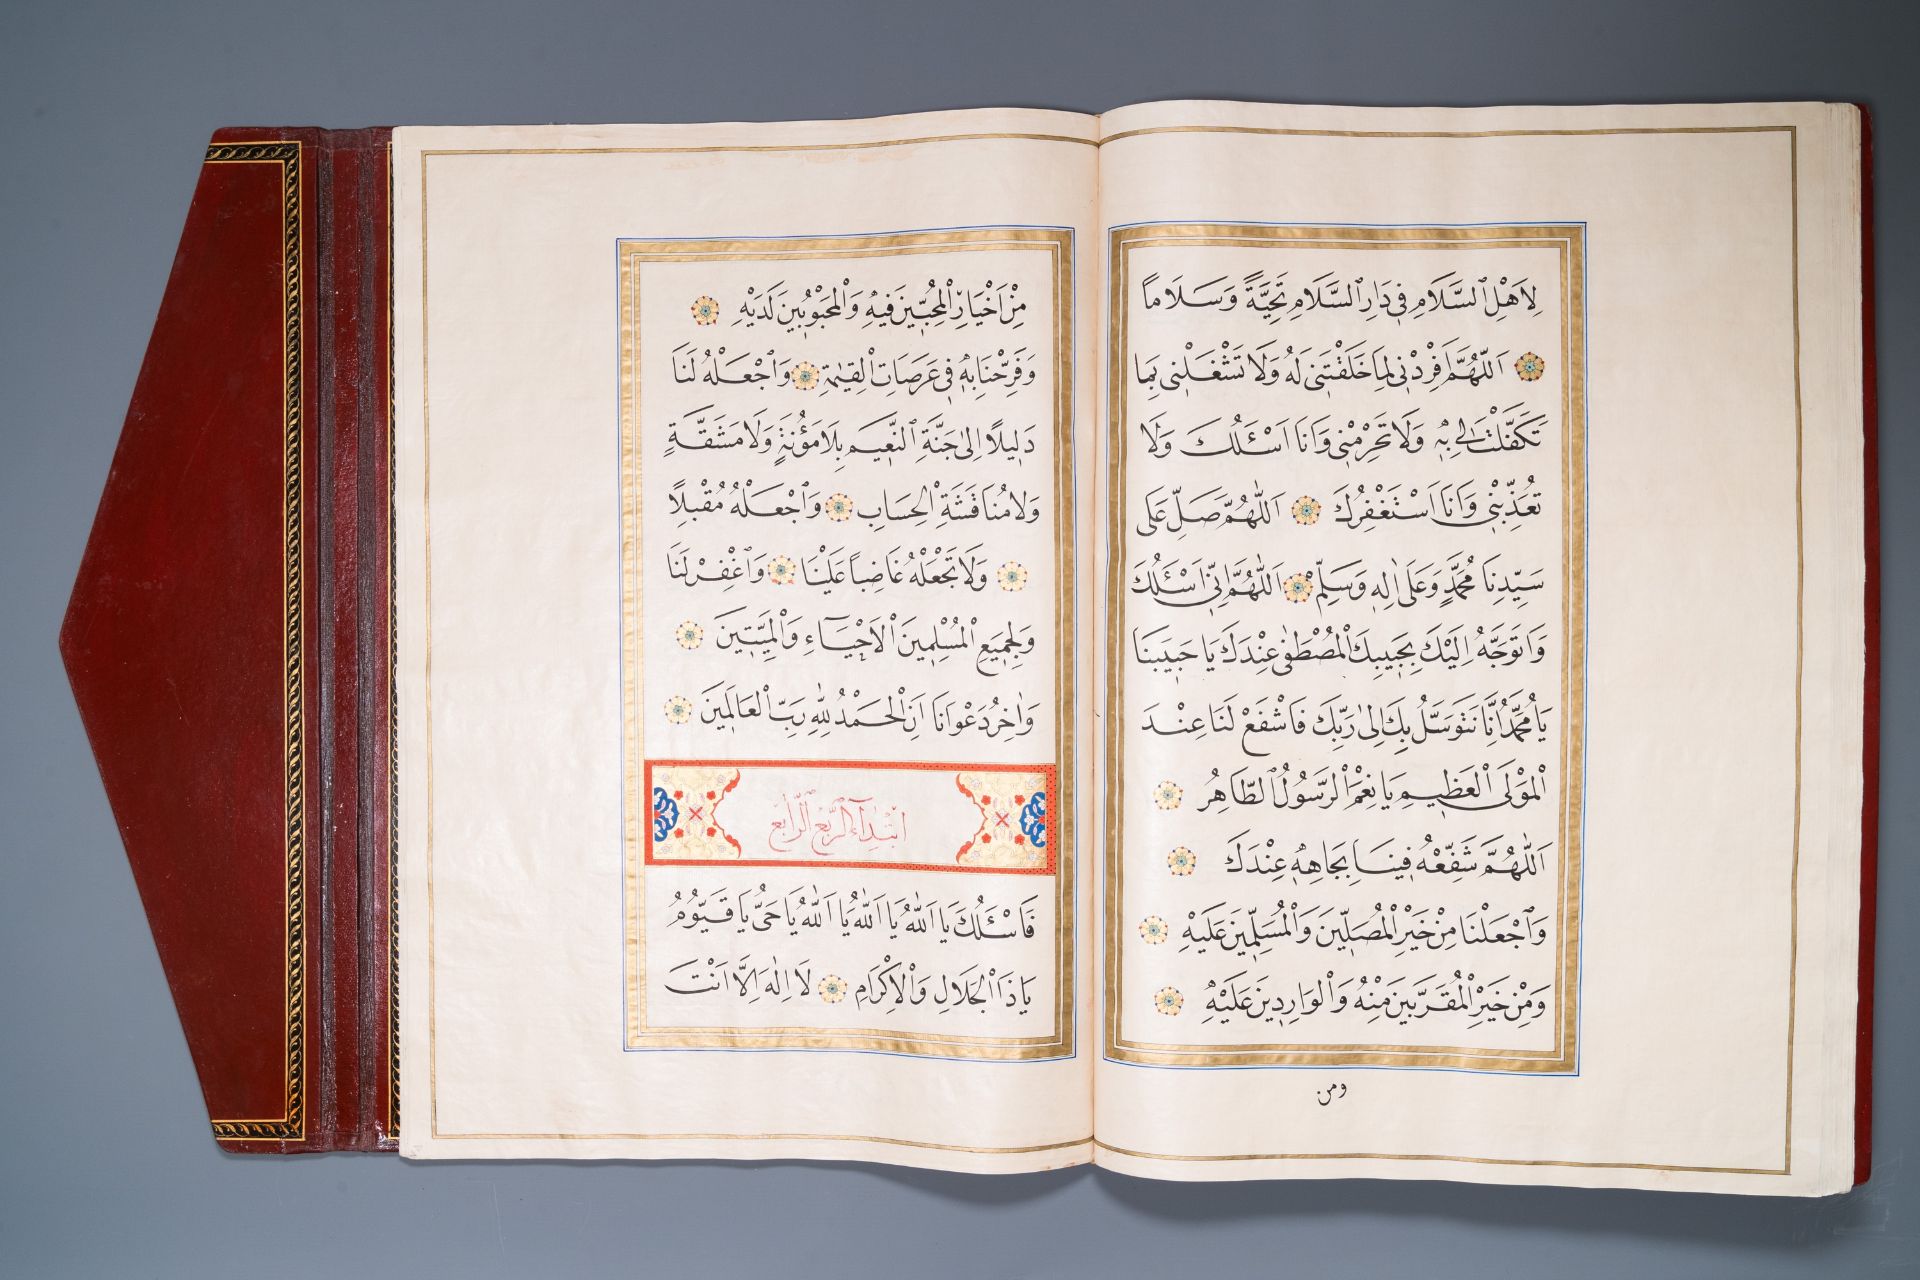 لِاَهْلِ السَّلَامِ فِي دَارِ السَّلَامِ تَحِيَّةً وَسَلَامًا
اَللّٰهُمَّ اَفْرِدْنِي لِمَا خَلَقْتَنِي لَهُ وَلَا تَشْغَلْنِي بِمَا
تَكَفَّلْتَ لِي بِهِ وَلَا تَحْرِمْنِي وَاَنَا اَسْئَلُكَ وَلَا
تُعَذِّبْنِي وَاَنَا اَسْتَغْفِرُكَ اَللّٰهُمَّ صَلِّ عَلٰى
سَيِّدِنَا مُحَمَّدٍ وَعَلٰى اٰلِهِ وَسَلِّمْ اَللّٰهُمَّ اِنِّي اَسْئَلُكَ
وَاَتَوَجَّهُ اِلَيْكَ بِحَبِيبِكَ الْمُصْطَفٰى عِنْدَكَ يَا حَبِيبَنَا
يَا مُحَمَّدُ اِنَّا نَتَوَسَّلُ بِكَ اِلٰى رَبِّكَ فَاشْفَعْ لَنَا عِنْدَ
الْمَوْلَى الْعَظِيمِ يَا نِعْمَ الرَّسُولُ الطَّاهِرُ
اَللّٰهُمَّ شَفِّعْهُ فِينَا بِجَاهِهِ عِنْدَكَ
وَاجْعَلْنَا مِنْ خَيْرِ الْمُصَلِّينَ وَالْمُسَلِّمِينَ عَلَيْهِ
وَمِنْ خَيْرِ الْمُقَرَّبِينَ مِنْهُ وَالْوَارِدِينَ عَلَيْهِ
ومن
مِنْ اَخْيَارِ الْمُحِبِّينَ فِيهِ وَالْمَحْبُوبِينَ لَدَيْهِ
وَفَرِّحْنَا بِهِ فِي عَرَصَاتِ الْقِيٰمَةِ وَاجْعَلْهُ لَنَا
دَلِيلًا اِلٰى جَنَّةِ النَّعِيمِ بِلَا مَؤُنَةٍ وَلَا مَشَقَّةٍ
وَلَا مُنَاقَشَةِ الْحِسَابِ وَاجْعَلْهُ مُقْبِلًا
وَلَا تَجْعَلْهُ غَاضِبًا عَلَيْنَا وَاغْفِرْ لَنَا
وَلِجَمِيعِ الْمُسْلِمِينَ الْاَحْيَاءِ وَالْمَيِّتِينَ
وَاٰخِرُ دَعْوَانَا اَنِ الْحَمْدُ لِلّٰهِ رَبِّ الْعَالَمِينَ
ابْتِدَاءُ الرُّبْعِ الرَّابِعِ
فَاَسْئَلُكَ يَا اَللّٰهُ يَا اَللّٰهُ يَا اَللّٰهُ يَا حَيُّ يَا قَيُّومُ
يَا ذَا الْجَلَالِ وَالْاِكْرَامِ لَا اِلٰهَ اِلَّا اَنْتَ